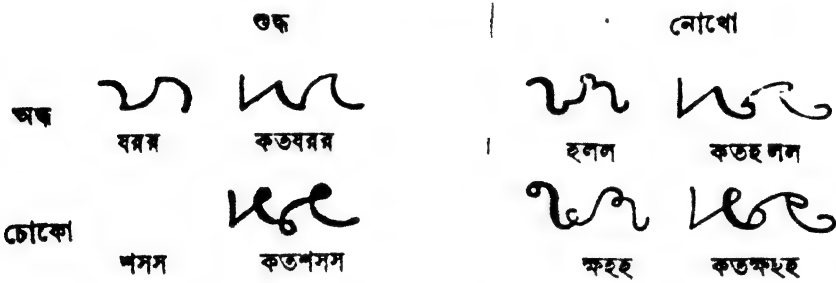 শুদ্ধ নোখো
অন্ধ
যরর কতযরর হলল কতহলল
চোকো
শসস কতশসস ক্ষহহ কতক্ষহহ